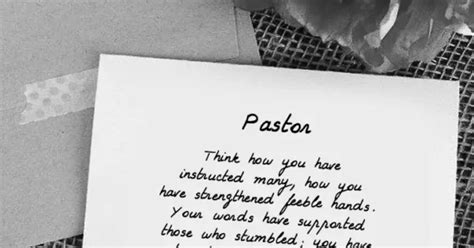 Pastor
Think how you have
instructed many, how you
have strengthened feeble hands.
Your words have supported
those who stumbled; you have